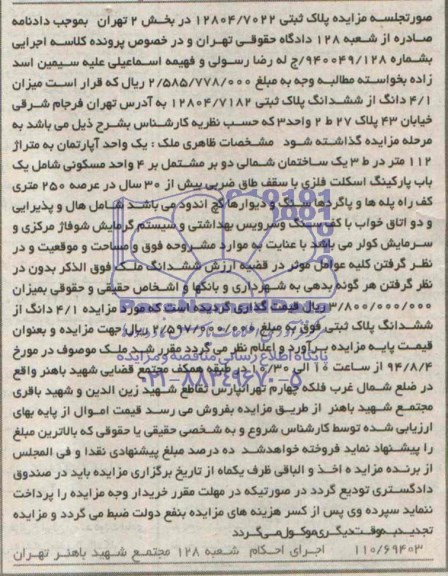 صورتجلسه مزایده پلاک ثبتی ۱۲۸۰۴/۷۰۲۲ در بخش ۲ تهران بموجب دادنامه
صادره از شعبه ۱۲۸ دادگاه حقوقی تهران و در خصوص پرونده کلاسه اجرایی
بشماره ۹۴۰۰۴۹/۱۲۸/ج له رضا رسولی و فهیمه اسماعیلی علیه سیمین اسد
زاده بخواسته مطالبه وجه به مبلغ ۲/۵۸۵/۷۷۸/۰۰۰ ریال که قرار است میزان
۴/۱ دانگ از ششدانگ پلاک ثبتی ۱۲۸۰۴/۷۱۸۲ به آدرس تهران فرجام شرقی
خیابان ۴۳ پلاک ۲۷ ط ۲ واحد۳ که حسب نظریه کارشناس بشرح ذیل می باشد به
مرحله مزایده گذاشته شود مشخصات ظاهری ملک : یک واحد آپارتمان به متراژ
۱۱۲ متر در ط ۳ یک ساختمان شمالی دو بر مشتمل بر ۴ واحد مسکونی شامل یک
باب پارکینگ اسکلت فلزی با سقف طاق ضربی بیش از ۳۰ سال در عرصه ۲۵۰ متری
کف راه پله ها و پاگردها سنگ و دیوارها گچ اندود می باشد شامل هال و پذیرایی
و دو اتاق خواب با کف سنگ وسرویس بهداشتی و سیستم گرمایش شوفاژ مرکزی و
سرمایش کولر می باشد با عنایت به موارد مشروحه فوق و مساحت و موقعیت و در
نظر گرفتن کلیه عوامل موثر در قضیه ارزش ششدانگ ملک فوق الذکر بدون در
نظر گرفتن هر گونه بدهی به شهرداری و بانکها و اشخاص حقیقی و حقوقی بمیزان
۳/۸۰۰/۰۰۰/۰۰۰ ریال قیمت گذاری گردیده است که مورد مزایده ۴/۱ دانگ از
ششدانگ پلاک ثبتی فوق به مبلغ ریال جهت مزایده و بعنوان
قیمت پایه مزایده برآورد و اعلام نظر می گردد مقرر شد ملک موصوف در مورخ
۹۴/۸/۴ از ساعت ۱۰ الی ۱۰/۳۰ در طبقه همکف مجتمع قضایی شهید باهنر واقع
در ضلع شمال غرب فلکه چهارم تهرانپارس تقاطع شهید زین الدین و شهید باقری
مجتمع شهید باهنر از طریق مزایده بفروش می رسد قیمت اموال از پایه بهای
ارزیابی شده توسط کارشناس شروع و به شخصی حقیقی یا حقوقی که بالاترین مبلغ
را پیشنهاد نماید فروخته خواهدشد ده درصد مبلغ پیشنهادی نقدا و فی المجلس
از برنده مزایده اخذ و الباقی ظرف یکماه از تاریخ برگزاری مزایده باید در صندوق
دادگستری تودیع گردد در صورتیکه در مهلت مقرر خریدار وجه مزایده را پرداخت
ننماید سپرده وی پس از کسر هزینه های مزایده بنفع دولت ضبط می گردد و مزایده
تجدید بموقت دیگری موکول می گردد
۱۱۰/۶۹۴۰۳ اجرای احکام شعبه ۱۲۸ مجتمع شهید باهنر تهران
پایگاه اطلاع رسانی مناقصه و مزایده
۰۲۱-۸۸۳۴۹۶۷۰-۵